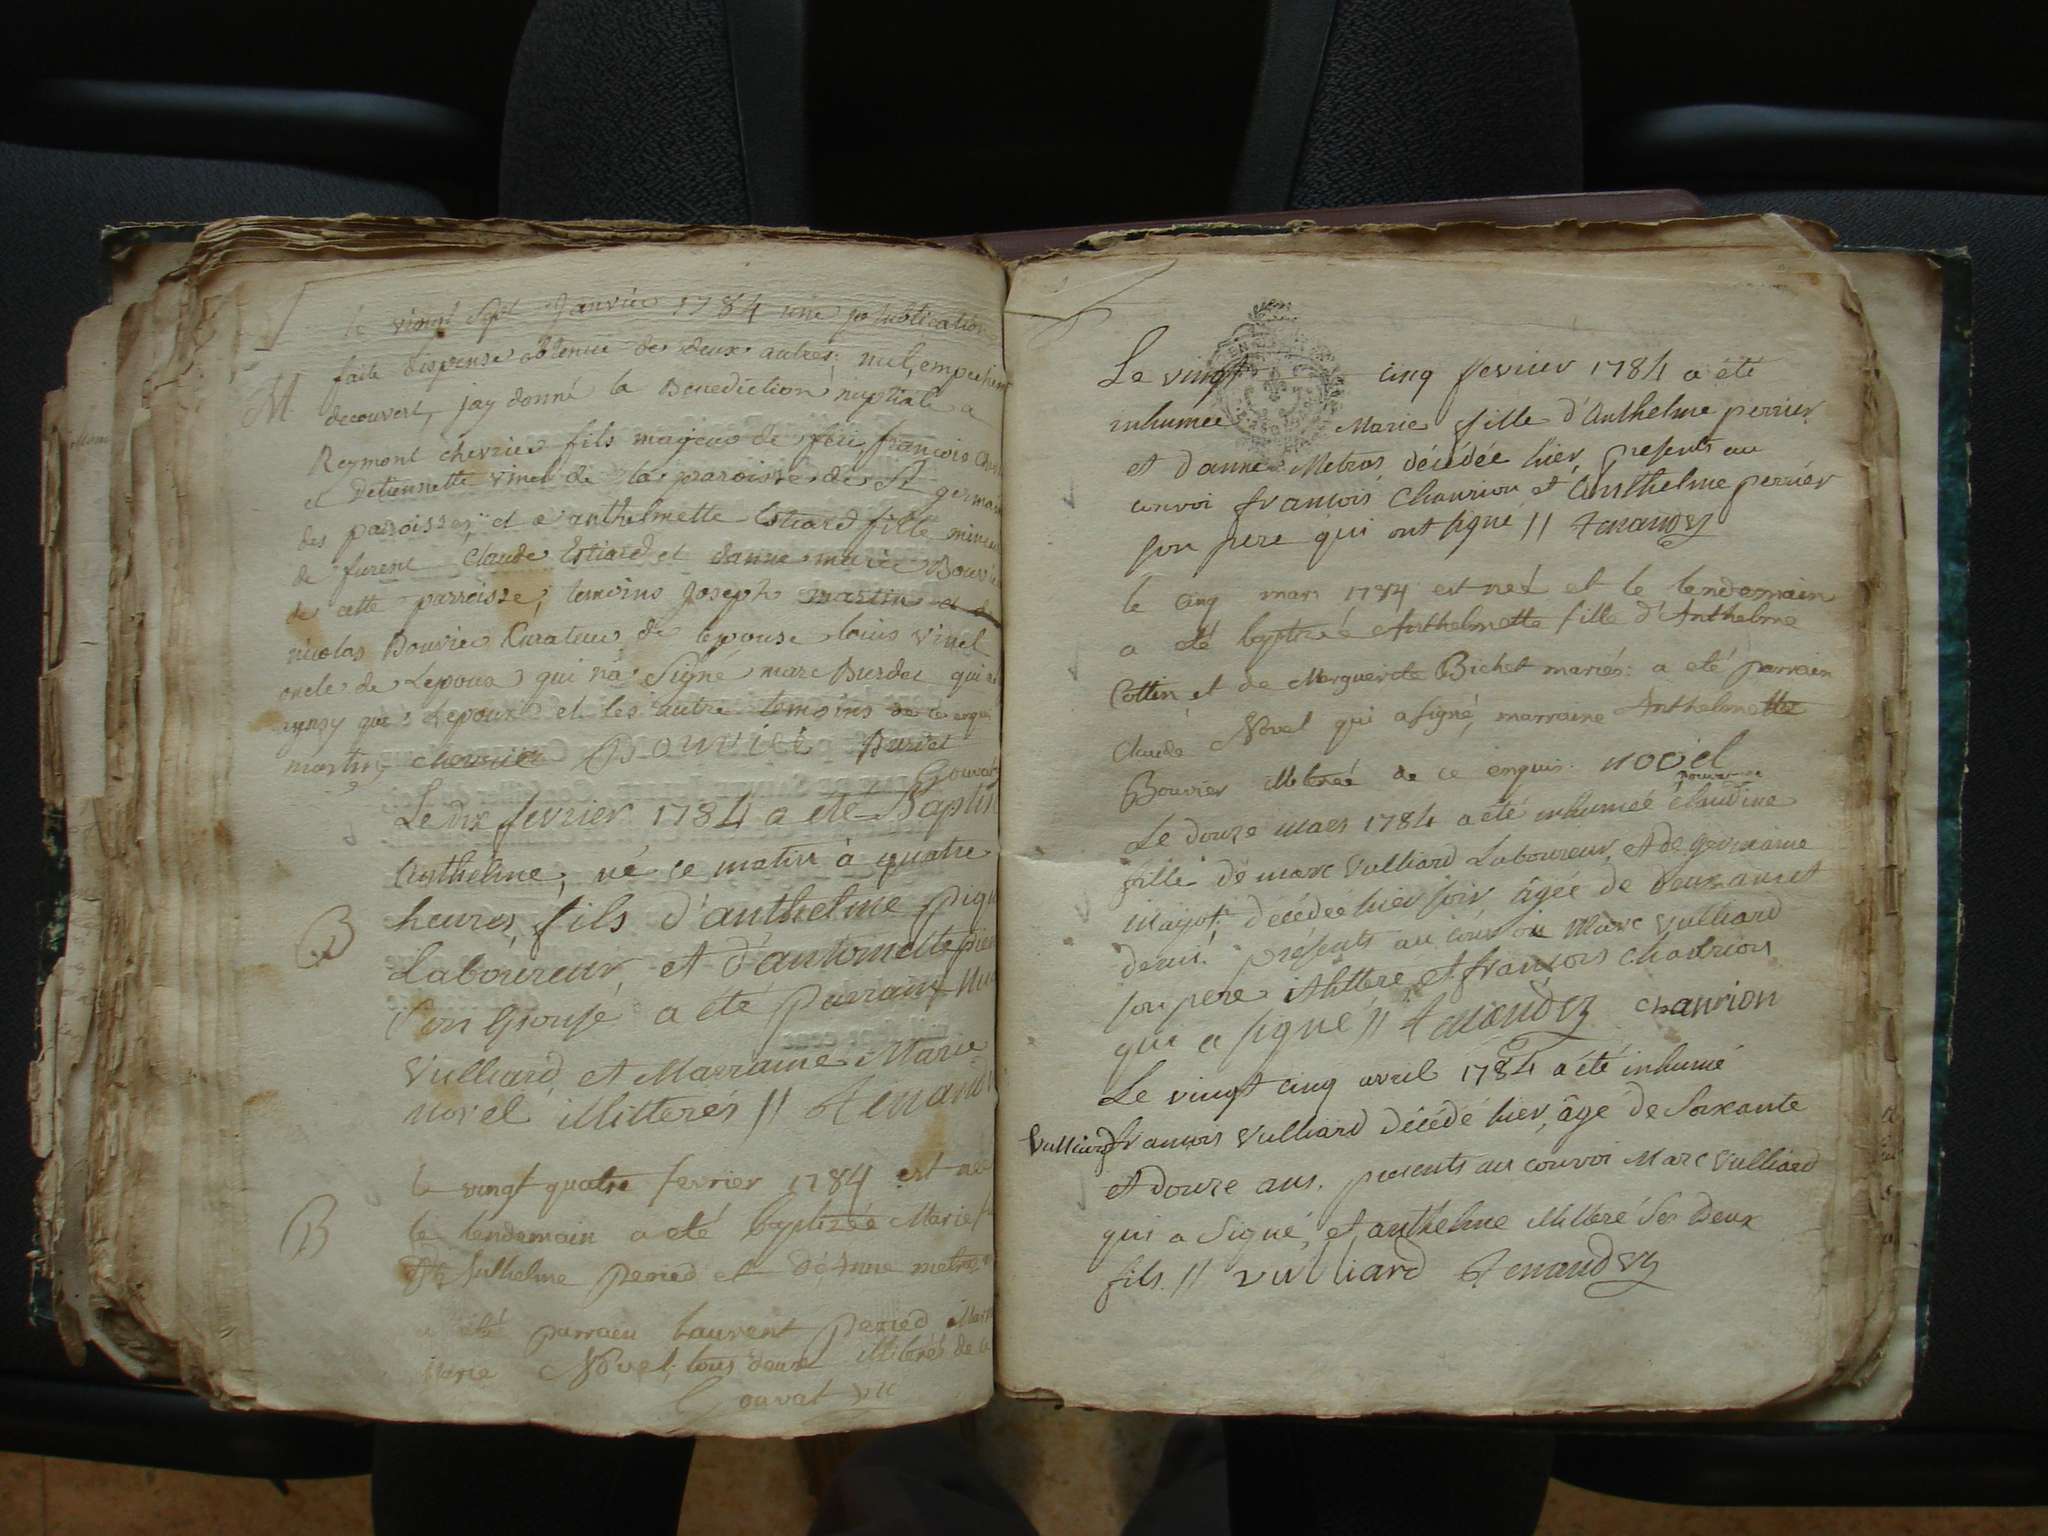 le vingt Sept Janvier 1784 une publication
faite dispense obtenue de deux autres: nul empechem
M
decouvert, jay donné la Benediction nuptiale a
Reymont chevrier fils majeur de feu francois
et detiennette vinel de la paroisse de St germain
des paroisses et a anthelmette Estiard fille mineure
de furent Claude Estiard et danne marie Bouvier
de cette parroisse, temoins Joseph martin
nicolas Bouvier Curateur de lepouse louis vinel
oncle de Lepoux qui na Signé marc Burdet qui
aynsy que Lepoux et les autre temoins de ce enquis
martin chevrier Bouvier Burdet
Gouvat
Le dix fevrier 1784 a été Baptisé
Anthelme, né ce matin à quatre
B
heures, fils d'anthelme
Laboureur, et d'antoinette
son Epouse a été parrain
Vulliard, et Marraine Marie
novel illitterés //
le vingt quatre fevrier 1784 est née
B
le lendemain a eté baptizée Marie
De Anthelme peried et Dé Anne metras
a été parrain laurent peried
Marie Novel tous deux illiterés de ce
Gouvat vic
Le vingt cinq fevrier 1784 a été
inhumée Marie fille d'Anthelme perrier
et d'anne Metras décédée hier, presents au
convoi francois Chaurion et Anthelme perrier
son pere qui ont signé //
le cinq mars 1784 est neé et le lendemain
a eté baptizeé Anthelmette fille d'Anthelme
Cottin et de Marguerite Bichet mariés: a eté parrain
Claude Novel qui a signé, marraine Anthelmette
Bouvier illitereé de ce enquis. novel
Gouvat vic
Le douze mars 1784 a été inhumeé claudine
fille de marc Vulliard Laboureur, et de germaine
Mayot décédée hier soir âgée de deux ans et
demi. présents au convoi Marc Vulliard
son pere illittere, et françois chaurion
qui a signé // chaurion
Le vingt cinq avril 1784 a été inhumé
Vulliard
francois Vulliard décédé hier, âgé de Soixante
et douze ans. presents au convoi Marc Vulliard
qui a Signé, et anthelme illitteré Ses Deux
fils // vulliard